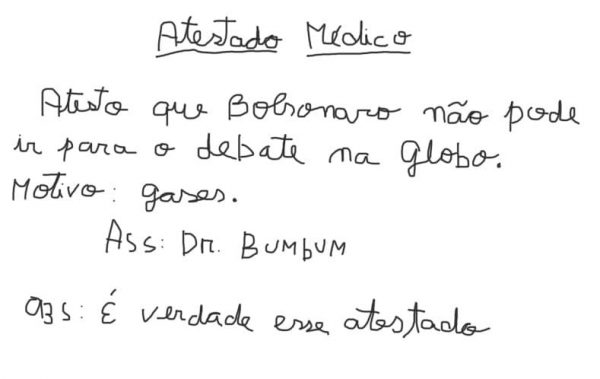 Atestado Médico
Atesto que Bolsonaro não pode
ir para o debate na Globo.
Motivo: gases.
Ass: Dr. Bumbum
obs: É verdade esse atestado